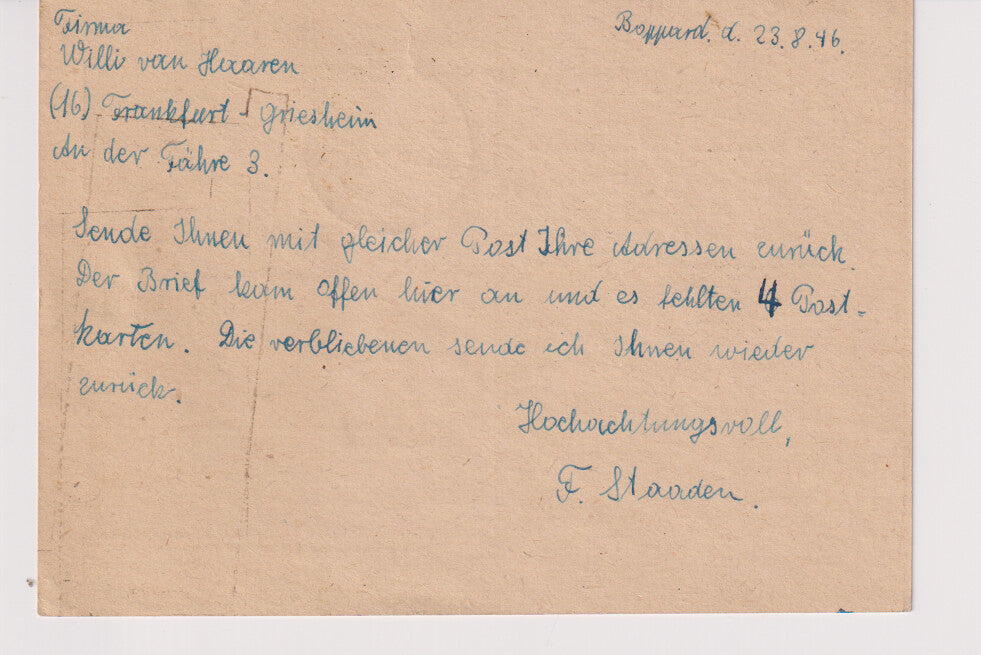 Firma
Boppard. d. 23.8.46.
Willi van Haaren
(16) Frankfurt - Griesheim
An der Fähre 3.
Sende Ihnen mit gleicher Post Ihre Adressen zurück.
Der Brief kam offen hier an und es fehlten 4 Post-
karten. Die verbliebenen sende ich Ihnen wieder
zurück.
Hochachtungsvoll,
F. Staaden.